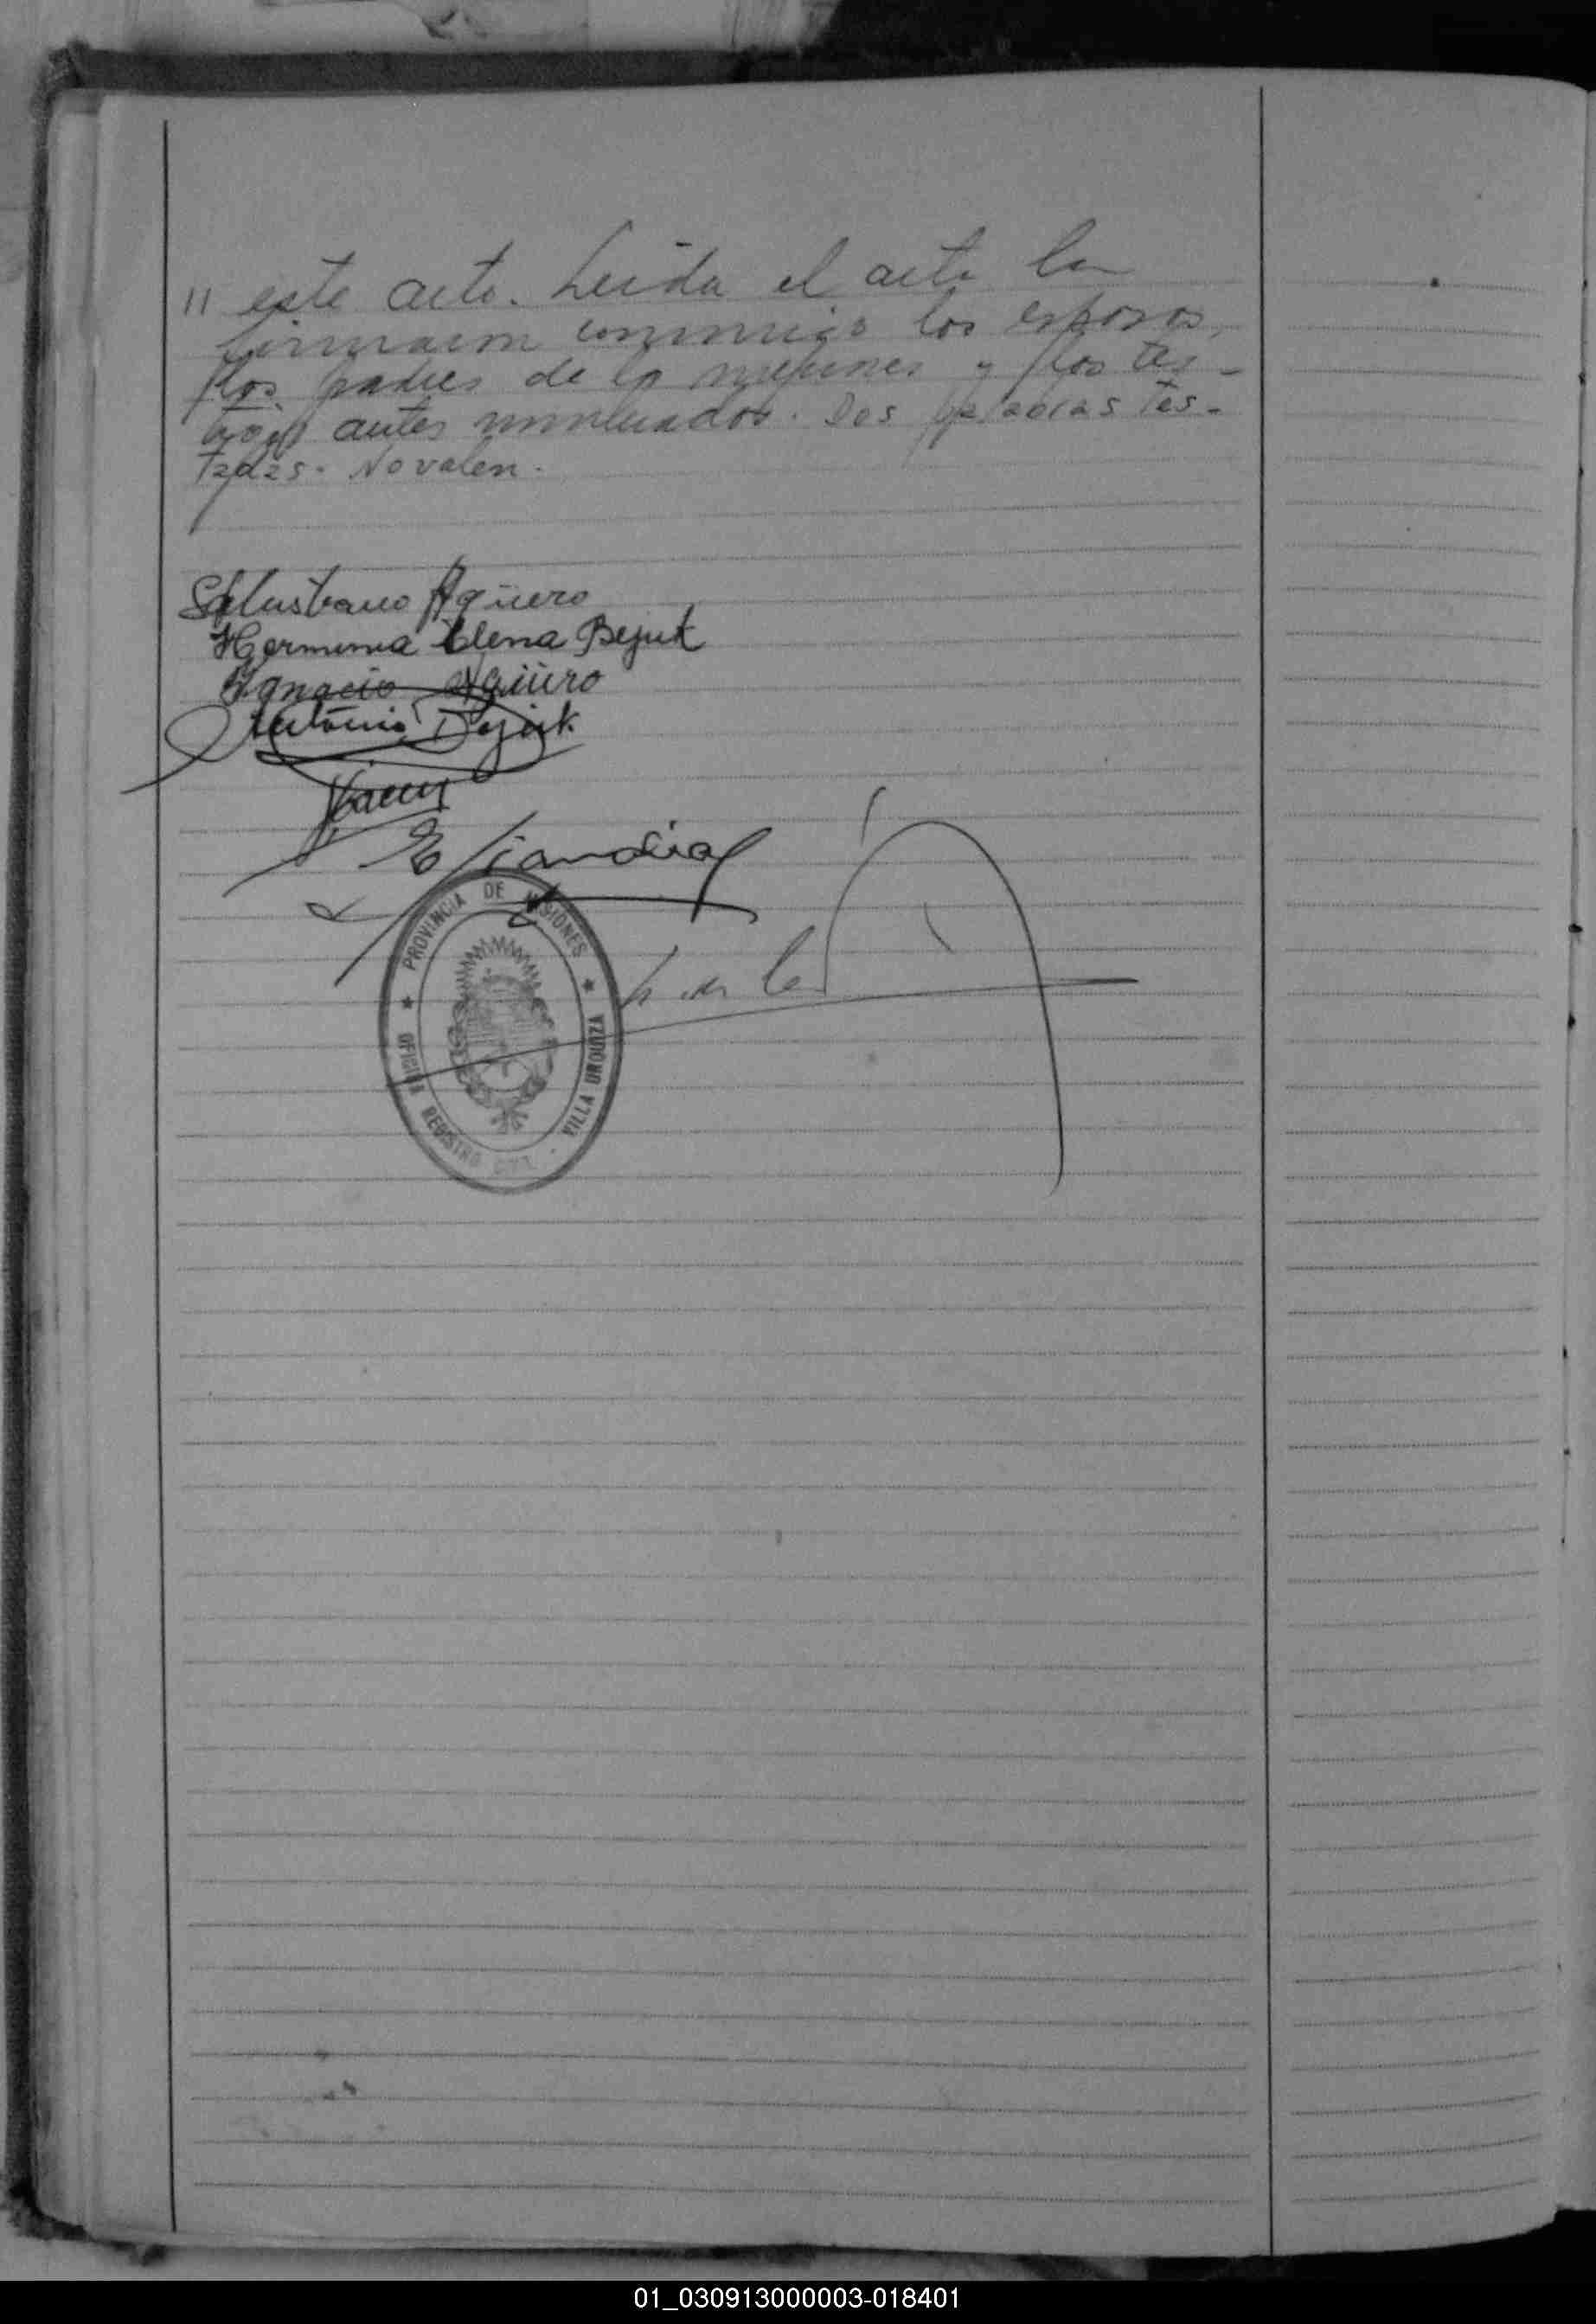 // este acto. Leida el acta la
firmaron conmigo los esposos,
los padres de la menores y los tes-
tigos antes nombrados. Dos palabras tes-
tadas. No valen.
Salustiano Agüero
Herminia Elena Bejuk
Ygnacio Agüero
Antonio Bejuk
PROVINCIA DE MISIONES
OFICINA REGISTRO CIVIL - VILLA URQUIZA
01_030913000003-018401